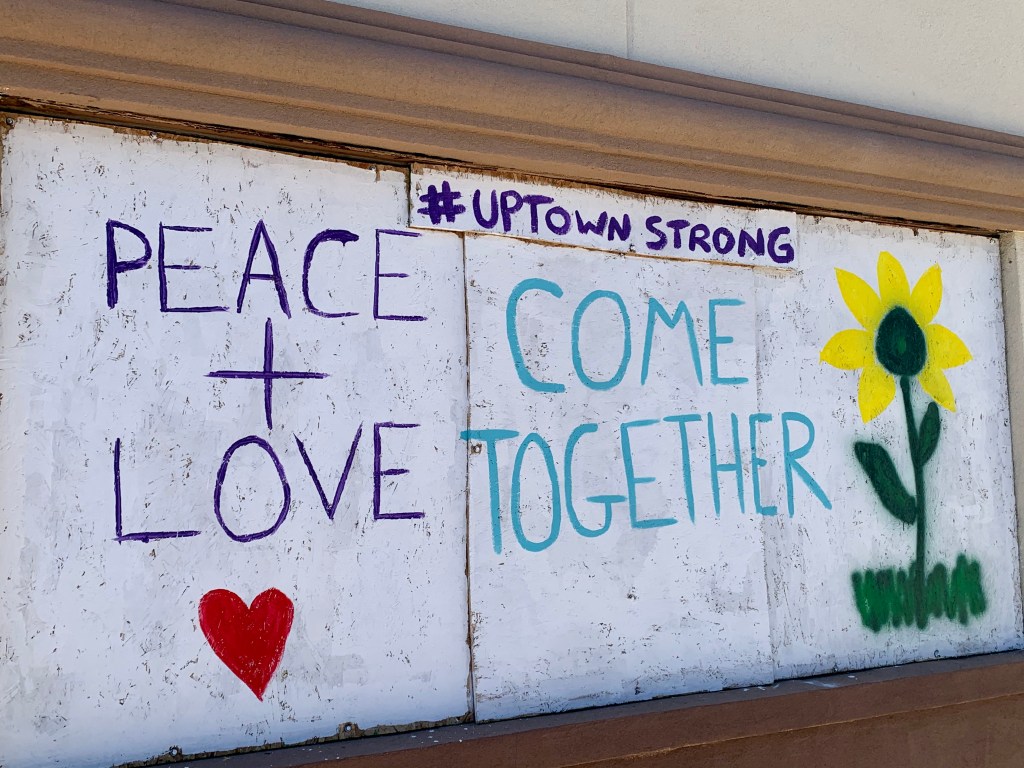 PEACE
+
LOVE
# UPTOWN STRONG
COME
TOGETHER